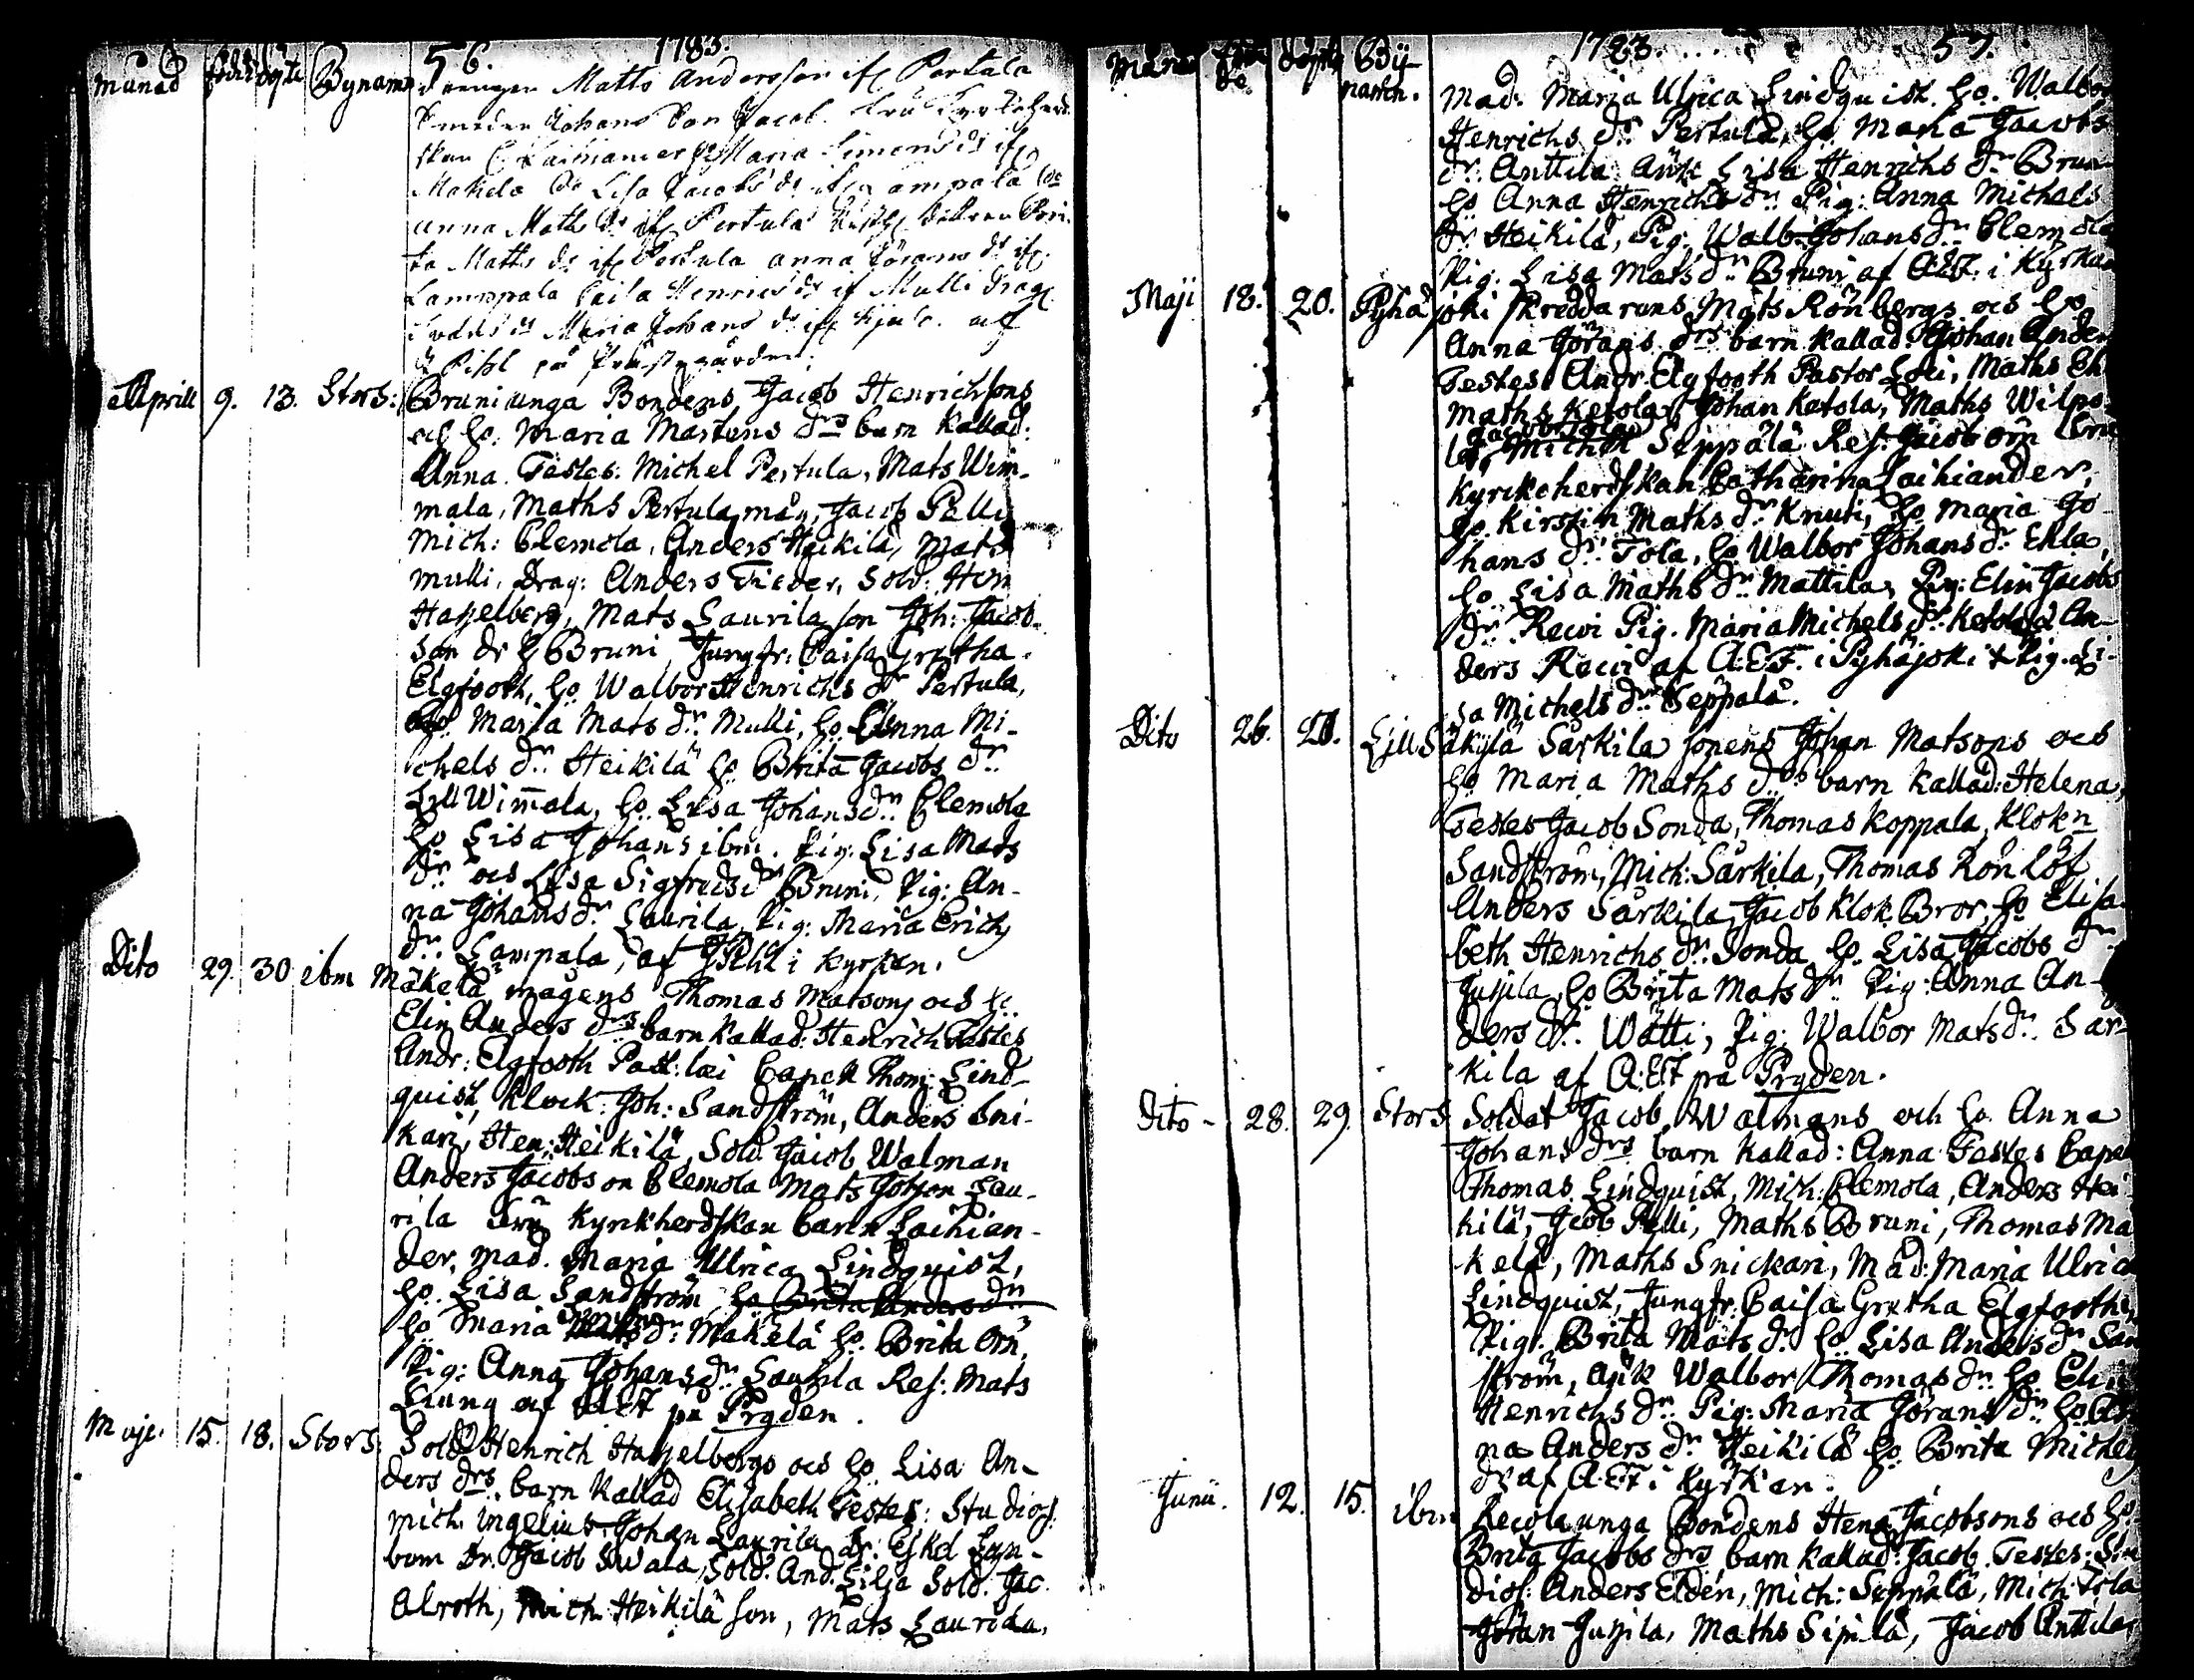 56. 1783.
Månad födt döpte Bynamn
Drengen Matts Andersson ifr Pertula
Smeden Johans Son Jacob Fru Kyrkoherd
skan C. Laihiander Maria Simons dr ifr
Makela Do Lisa Jacobs dr ifr Lampala Do
Anna Matts dr ifr Pertula
ta Matts dr ifr Pertula Anna Görans dr ifr
Lamppala Caisa Henrics dr if Mulli Drag
Maria Johans dr ifr af
på Prästegården.
Aprill 9. 13. Stors: Bruni unga Bondens Jacob Henrichsons
och ho: Maria Martens drs barn kallad:
Anna. Testes: Michel Pertula, Mats Wim-
mala, Maths Pertula måg, Jacob Pelli
Mich: Clemola, Anders Heikilä, Mats
Mulli, Drag: Anders Fieder, Sold: Hen
Hasselberg, Mats Laurila son Joh: Jacob-
son dr Bruni Jungfr: Caisa Gretha
Elgfooth, ho Walbor Henrichs dr Pertula,
ho. Maria Mats dr: Mulli, ho. Anna Mi-
chels dr: Heikilä ho Brita Jacobs dr:
Lill Wimala, ho. Lisa Johans dr: Clemola
ho Lisa Johans ibm. Pig: Lisa Mats
dr: och Lisa Sigfreds dr Bruni, Pig: An-
na Johans dr: Laurila, Pig: Maria Erichs
dr: Lampala, af i kyrkan.
Dito 29. 30 ibm Mäkelä mågens Thomas Matsons och ho.
Elin Anders drs barn kallad: Henrich Testes
Andr: Elgfooth Past: loci Capell Thom: Lind-
quist, Klock: Joh: Sandström, Anders Sni-
kari, Hen: Heikilä, Sold. Jacob Walman
Anders Jacobson Clemola Mats Johson Lau-
rila Fru Kyrkherdskan Carin Laihian-
der, mad. Maria Ulrica Lindquist,
ho. Lisa Sandström ho Brita Anders dr
ho Maria Mats dr: Makelä ho. Brita Örn,
Pig: Anna Johans dr: Laurila Ref: Mats
Liung af AEF på Prgden.
Maje. 15. 18. Stors: Sold Henrich Hasselbergs och ho. Lisa An-
ders drs. barn kallad Elisabeth Testes: Studios:
mich Ingelius Johan Laurila Dr: Eskel Lön-
bom Dr. Jacob Swala, Sold. And. Lilja Sold. Jac.
Alroth, Mich Heikilä son, Mats Laurila,
1783. 57.
Månad döpte By-
namn.
Mad: Maria Ulrica Lindquist. ho. Walbor
Henrichs dr: Pertula, ho. Maria Jacobs
dr: Anttila Änk Lisa Henrichs dr: Bruni
ho Anna Henrichs dr: Pig: Anna Michels
dr: Heikilä, Pig: Walb: Johans dr: Clemola
Pig: Lisa Mats dr: Bruni af AEF: i Kyrkan
Maji 18. 20. Pyhäjoki skreddarens Mats Rönbergs och ho
Anna Görans drs barn kallad: Johan Ander
Testes Andr. Elgfooth Pastor Loci, Maths Eh
Maths Ketola, Johan Ketola, Maths Wilpo
Jacob Tola
la, Michel Seppälä Ref: Jacob Örn Fru
Kyrkoherdskan Catharina Laihiander,
ho. Kirstin Maths dr: Knuti, ho Maria Jo-
hans dr: Tola, ho Walbor Johans dr: Ehla,
ho Lisa Maths dr: Mattila, Pig: Elin Jacobs
dr: Rewi Pig. Maria Michels dr: Ketola An-
ders Rewi af A:E:F. i Pyhäjoki & Pig. Li-
sa Michels dr: Seppälä.
Dito 26. Lill Säkylä Särkila sonens Johan Matsons och
ho Maria Maths drs barn kallad: Helena,
Testes Jacob Sonda, Thomas Koppala, Klokn
Sandström, Mich: Särkila, Thomas Rönlöf
Anders Särkila, Jacob Klok. Bror, ho Elisa-
beth Henrichs dr: Sonda ho. Lisa Jacobs dr
Jusila, ho Brita Mats dr: Pig: Anna An-
ders dr: Wätti, Pig: Walbor Mats dr: Sär-
kila af A:EF på Prgden.
Dito - 28. 29. Stors Soldat Jacob Walmans och ho. Anna
Johans drs barn kallad: Anna Testes Capel
Thomas Lindquist, Mich: Clemola, Anders Hei
kilä, Jacob Pelli, Maths Bruni, Thomas Mä
kelä, Maths Snickari, Mad: Maria Ulrica
Lindquist, Jungfr: Caisa Gretha Elgfooth,
Pig: Brita Mats dr. ho. Lisa Anders dr San
ström, Änk Walbor Thomas dr: ho. Elin
Henrichs dr: Pig: Maria Görans dr: ho An
na Anders dr: Heikilä ho. Brita Michels
dr af A:EF: i Kyrkan.
Junii. 12. 15. ibm Recola unga Bondens Hena Jacobsons och ho.
Brita Jacobs drs barn kallad: Jacob. Testes: Stu
dios: Anders Eldén, Mich: Seppälä, Mich Tola
Göran Jusila, Maths Sipilä, Jacob Anttila